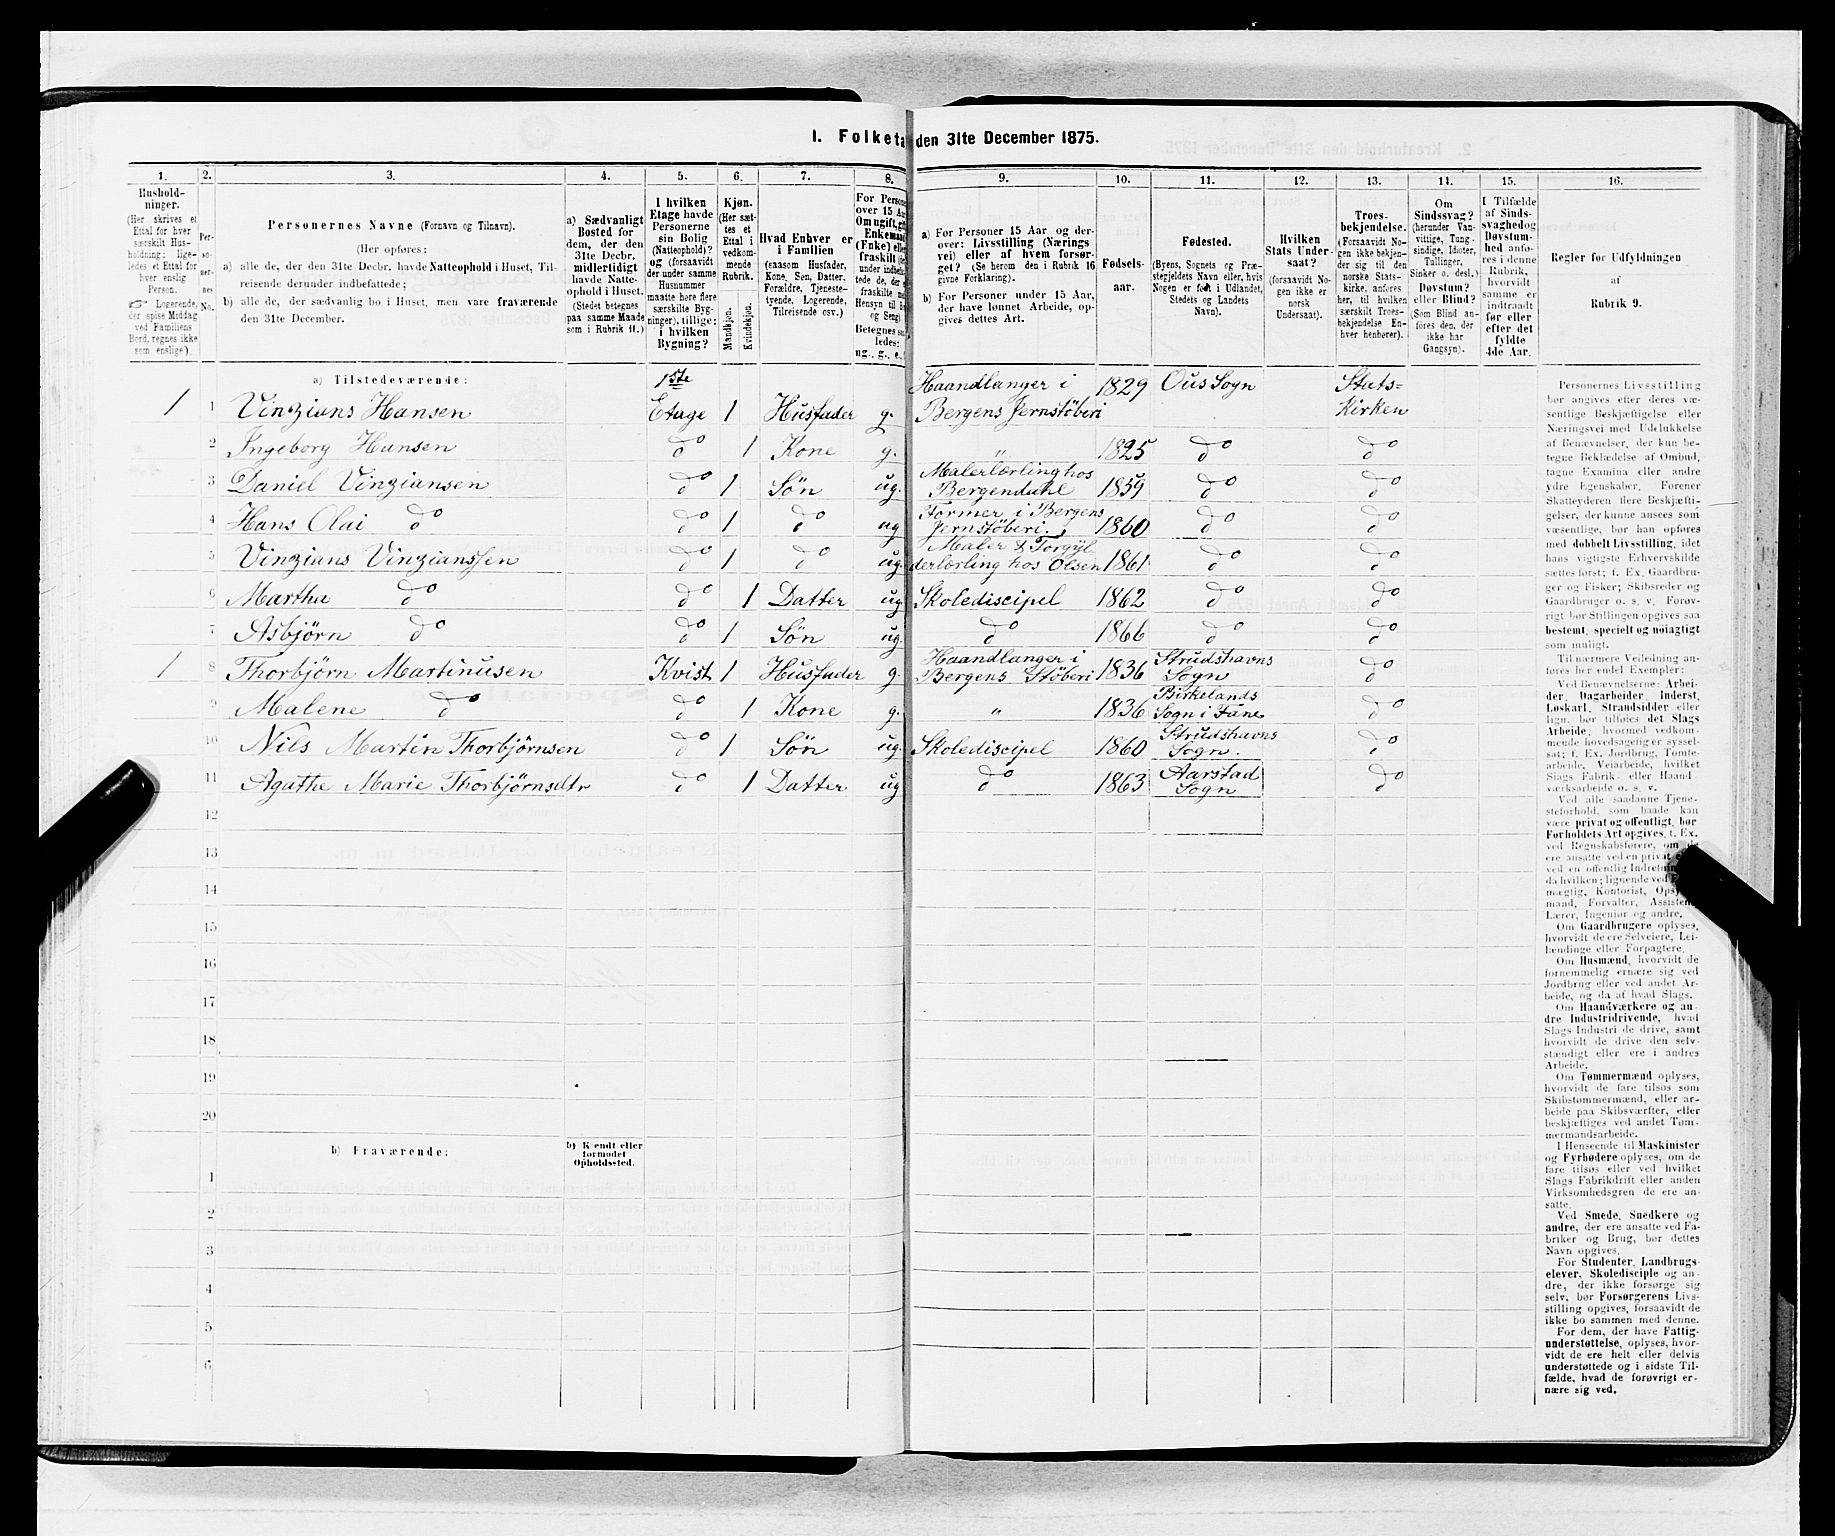 1. Folketa den 31te December 1875.
1. 2. 3. 4. 5. 6. 7. 8. 9. 10. 11. 12. 13. 14. 15. 16.
Hushold-
ninger.
(Her skrives et
Ettal for hver
særskilt Hus-
holdning; lige-
ledes et Ettal for
hver enslig
Person.
☞ Logerende,
der spise Middag
ved Familiens
Bord, regnes ikke
som enslige).
Per-
so-
ner-
nes
No.
Personernes Navne (Fornavn og Tilnavn).
(Her opføres:
a) alle de, der den 31te Decbr. havde Natteophold i Huset, Til-
reisende derunder indbefattede;
b) alle de, der sædvanlig bo i Huset, men vare fraværende
den 31te December.
a) Sædvanligt
Bosted for
dem, der den
31te Decbr.
midlertidigt
havde Natte-
ophold i Huset.
(Stedet betegnes
paa samme Maade
som i Rubrik 11.)
I hvilken
Etage havde
Personerne
sin Bolig
(Natteophold)?
og (forsaavidt
der under samme
Husnummer
maatte høre flere
særskilte Byg-
ninger), tillige:
i hvilken
Bygning?
Kjøn.
(Her sæt-
tes et
Ettal i
vedkom-
mende
Rubrik.
Mandkjøn.
Kvindekjøn.
Hvad Enhver er
i Familien
(saasom Husfader,
Kone, Søn, Datter,
Forældre, Tjeneste-
tyende, Logerende,
Tilreisende osv.)
For Persone
over 15 Aa
Om ugift, gif
Enkemand
(Enke) elle
fraskilt
under indbe
tede de, de
fraskilte
Hensyn til
og Seng).
Betegnes saa
ledes:
ug., g., e.
a) For Personer 15 Aar og der-
over: Livsstilling (Nærings
vei) eller af hvem forsør-
get? (Se herom den i Rubrik 16
givne Forklaring).
b) For Personer under 15 Aar,
der have lønnet Arbeide, op-
gives dettes Art.
Fødsels-
aar.
Fødested.
(Byens, Sognets og Præ-
stegjeldets Navn eller, hvis
Nogen er født i Udlandet,
Stedets og Landets
Navn).
Hvilken
Stats Under-
saat?
(forsaavidt No-
gen ikke er
norsk
Undersaat).
Troes-
bekjendelse.
(Forsaavidt No-
gen ikke bekjen-
der sig til den
norske Stats-
kirke, anføres
her, til hvilken
særskilt Troes-
bekjendelse En-
hver henhører).
Om
Sindssvag?
(herunder Van-
vittige, Tung-
sindige, Idioter,
Tullinger,
Sinker o. desl.)
Døvstum?
eller Blind?
(Som Blind an-
føres den, der
ikke har
Gangsyn).
I Tilfælde
af Sinds-
svaghed og
Døvstum-
hed anfø-
res i denne
Rubrik,
hvorvidt
samme er
indtraadt
før eller
efter det
fyldte
4de Aar.
Regler for Udfyldningen
af
Rubrik 9.
a) Tilstedeværende:
1 1 Vinzians Hansen 1ste Etage 1 Husfader g. Haandlanger i Bergens Jernstøberi 1829 Ous Sogn Stats=Kirken
2 Ingeborg Hansen do 1 Kone g. " 1825 do do
3 Daniel Vinziansen do 1 Søn ug. Malerlærling hos Bergendahl 1859 do do
4 Hans Olai do do 1 do ug Former i Bergens Jernstøberi. 1860 do do
5 Vinzians Vinzianssen do 1 do ug. Maler & Forgyl derlærling hos Olsen 1861 do do
6 Martha do do 1 Datter ug Skolediscipel 1862 do do
7 Asbjørn do do 1 Søn ug. do 1866 do do
1 8 Thorbjørn Martinusen Kvist 1 Husfader g. Haandlanger i Bergens Støberi 1836 Strudshavns Sogn do
9 Malene do do 1 Kone g. " 1836 Birkelands Sogn i Fane do
10 Nils Martin Thorbjørnsen do 1 Søn ug. Skolediscipel 1860 Strudshavns Sogn. do
11 Agathe Marie Thorbjørnsdtr do 1 Datter ug do 1863 Aarstad Sogn do
12
13
14
15
16
17
18
19
20
b) Fraværende:
b) Kjendt eller
formodet
Opholdssted.
1
2
3
4
5
6
Personernes Livsstilling
bør angives efter deres væ-
sentlige Beskjæftigelse eller
Næringsvei med Udelukkelse
af Benævnelser, der kun be-
tegne Beklædelse af Ombud,
tagne Examina eller andre
ydre Egenskaber. Forener
Skatteyderen flere Beskjæfti-
gelser, der kunne ansees som
væsentlige, bør han opføres
med dobbelt Livsstilling, idet
hans vigtigste Erhvervskilde
sættes først; f. Ex. Gaardbru-
ger og Fisker; Skibsreder og
Gaardbruger o. s. v. Forøv-
rigt bør Stillingen opgives saa
bestemt, specielt og nøiagtigt
som muligt.
Til nærmere Veiledning an-
føres her endel Exempler:
Ved Benævnelserne: Arbei-
der, Dagarbeider, Inderst,
Løskarl, Strandsidder eller
lign. bør tilføies det Slags
Arbeide, hvormed vedkom-
mende hovedsagelig er syssel-
sat; f. Ex. Jordbrug, Tomte-
arbeide, Veiarbeide, hvilket
Slags Fabrik- eller Haand-
værksarbeide o. s. v.
Ved alle saadanne Tjene-
steforhold, som baade kan
være privat og offentligt, bør
Forholdets Art opgives, f. Ex.
ved Regnskabsførere, om de
ere ansatte ved en privat
ved en offentlig Indretnin
da hvilken; lignende ved
mægtig, Kontorist, Opsy
mand, Forvalter, Assisten
Lærer, Ingeniør og andre.
Om Gaardbrugere oplyses,
hvorvidt de ere Selveiere, Lei-
lændinge eller Forpagtere.
Om Husmænd, hvorvidt de
fornemmelig ernære sig ved
Jordbrug eller ved andet Ar-
beide, og da af hvad Slags.
Om Haandværkere og an-
dre Industridrivende, hvad
Slags Industri de drive, samt
hvorvidt de drive den selv-
stændigt eller ere i andres
Arbeide.
Om Tømmermænd oplyses,
hvorvidt de fare tilsøs som
Skibstømmermænd, eller ar-
beide paa Skibsværfter, eller
beskjæftiges ved andet Tøm-
mermandsarbeide.
I Henseende til Maskinister
og Fyrbødere oplyses, om de
fare tilsøs eller ved hvilket
Slags Fabrikdrift eller anden
Virksomhedsgren de ere an-
satte.
Ved Smede, Snedkere og
andre, der ere ansatte ved Fa-
briker og Brug, bør dettes
Navn opgives.
For Studenter, Landbrugs-
elever, Skolediscple og an-
dre, der ikke forsørge sig
selv, bør Forsørgerens Livs-
stilling opgives, forsaavidt de
ikke bo sammen med denne.
For dem, der have Fattig-
understøttelse, oplyses, hvor-
vidt de ere helt eller delvis
understøttede og i sidste Til-
fælde, hvad de forøvrigt er-
nære sig ved.